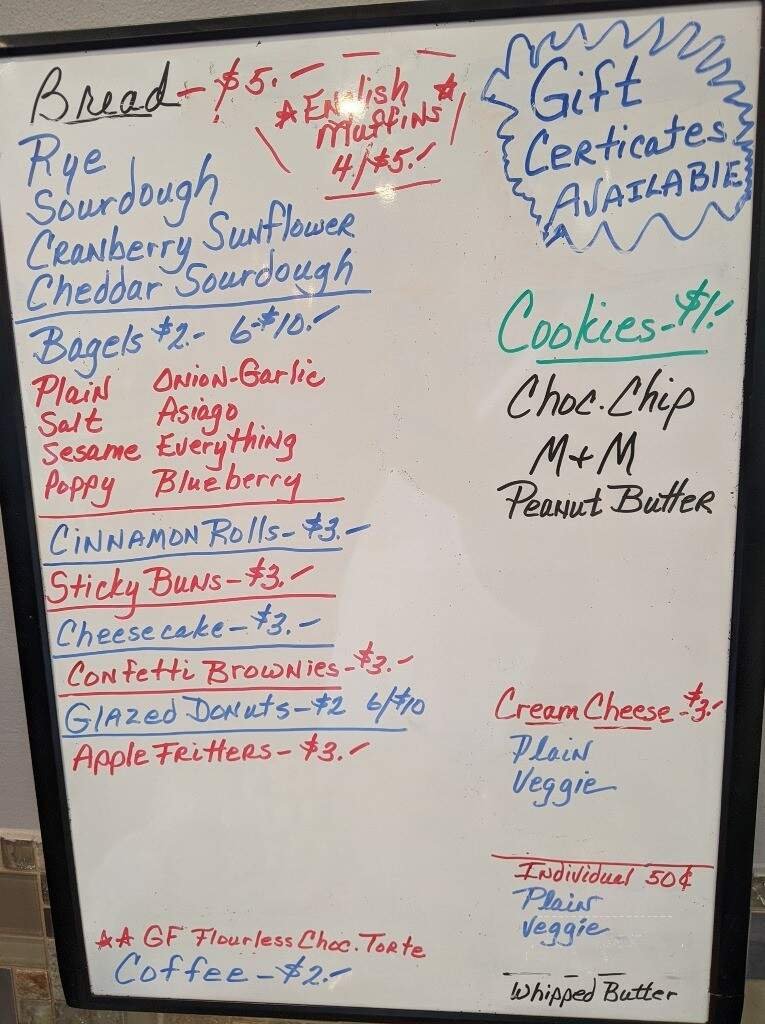 Bread - $5.-
☆ English ☆
Muffins
4/$5.-
Rye
Sourdough
Cranberry Sunflower
Cheddar Sourdough
Bagels $2.- 6-$10.-
Plain Onion-Garlic
Salt Asiago
Sesame Everything
Poppy Blueberry
Cinnamon Rolls - $3.-
Sticky Buns - $3.-
Cheesecake - $3.-
Confetti Brownies - $3.-
Glazed Donuts - $2 6/$10
Apple Fritters - $3.-
☆☆ GF Flourless Choc. Torte
Coffee - $2.-
Gift
Certicates
AVAILABlE
Cookies - $1.-
Choc. Chip
M+M
Peanut Butter
Cream Cheese - $3.-
Plain
Veggie
Individual 50¢
Plain
Veggie
Whipped Butter